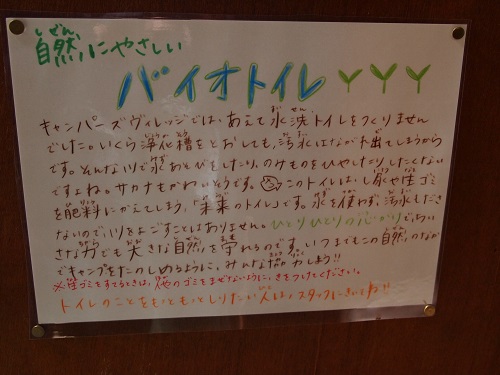 自然にやさしい
バイオトイレ
キャンパーズヴィレッジでは、あえて水洗トイレをつくりません
でした。いくら浄化槽をとおしても、汚水はながれ出てしまうから
です。そんな川で水あそびをしたり、のみものをひやしたりしたくない
ですよね。サカナもかわいそうです。このトイレは、し尿や生ゴミ
を肥料にかえてしまう、「未来のトイレ」です。水を使わず、汚水もださ
ないので、川をよごすことはありません。ひとりひとりの心がけで、ちい
さな力でも大きな自然を守れるのです。いつまでもこの自然のなか
でキャンプをたのしめるように、みんな協力しよう!!
※生ゴミをすてるときは、他のゴミをまぜないように、きをつけてください。
トイレのことをもっともっとしりたい人は、スタッフにきいてね!!